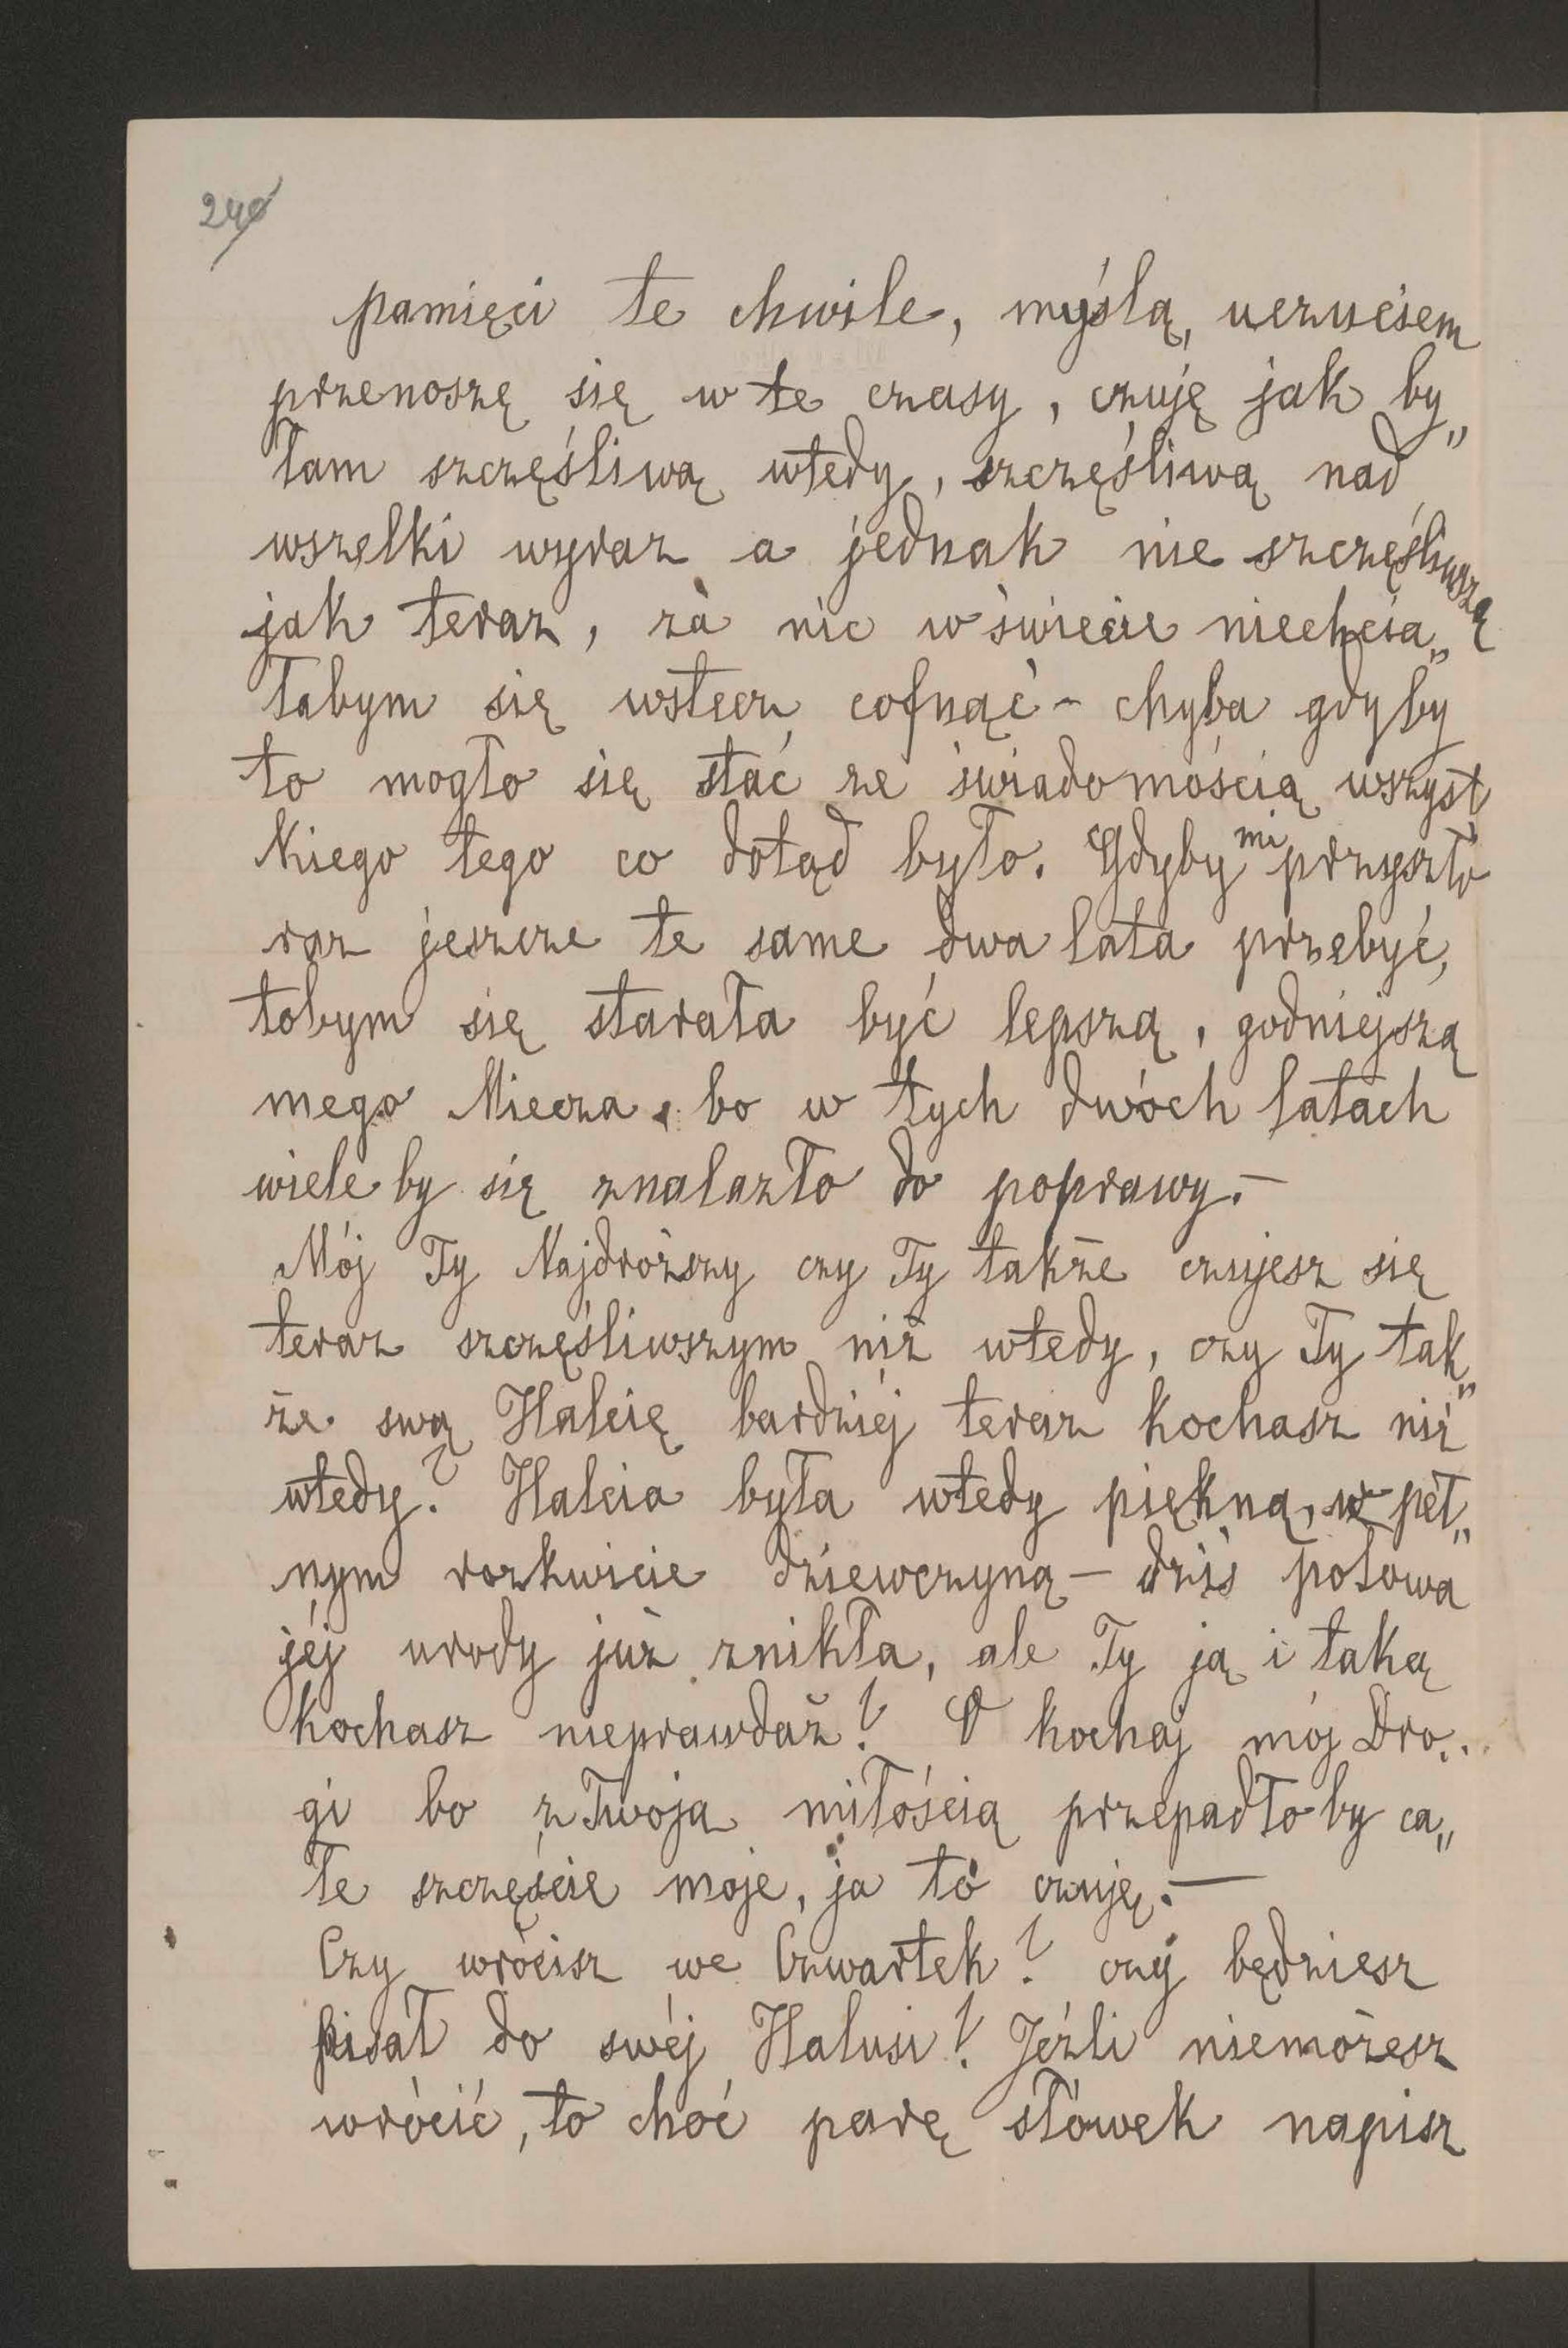 240
pamięci te chwile, myślą, uczuciem
przenoszę się w te czasy, czuję jak by„
łam szczęśliwą wtedy, szczęśliwą nad
wszelki wyraz a jednak nie szczęśliwszą
jak teraz, za nic w świecie niechcia„
łabym się wstecz cofnąć - chyba gdyby
to mogło się stać ze świadomością wszyst
kiego tego co dotąd było. Gdyby mi przyszło
raz jeszcze te same dwa lata przebyć,
tobym się starała być lepszą, godniejszą
mego Miecza, bo w tych dwóch latach
wiele by się znalazło do poprawy. —
Mój Ty Najdroższy czy Ty także czujesz się
teraz szczęśliwszym niż wtedy, czy Ty tak„
że swą Halcię bardziéj teraz kochasz niż
wtedy? Halcia była wtedy piękną, w peł„
nym rozkwicie dziewczyną — dziś połowa
jéj urody już znikła, ale Ty ją i taką
kochasz nieprawdaż? O kochaj mój Dro„
gi bo z Twoja miłością przepadło by ca„
łe szczęście moje, ja to czuję. —
Czy wrócisz we Czwartek? czy będziesz
pisał do swéj Halusi? Jeźli niemożesz
wrócić, to choć parę słówek napisz